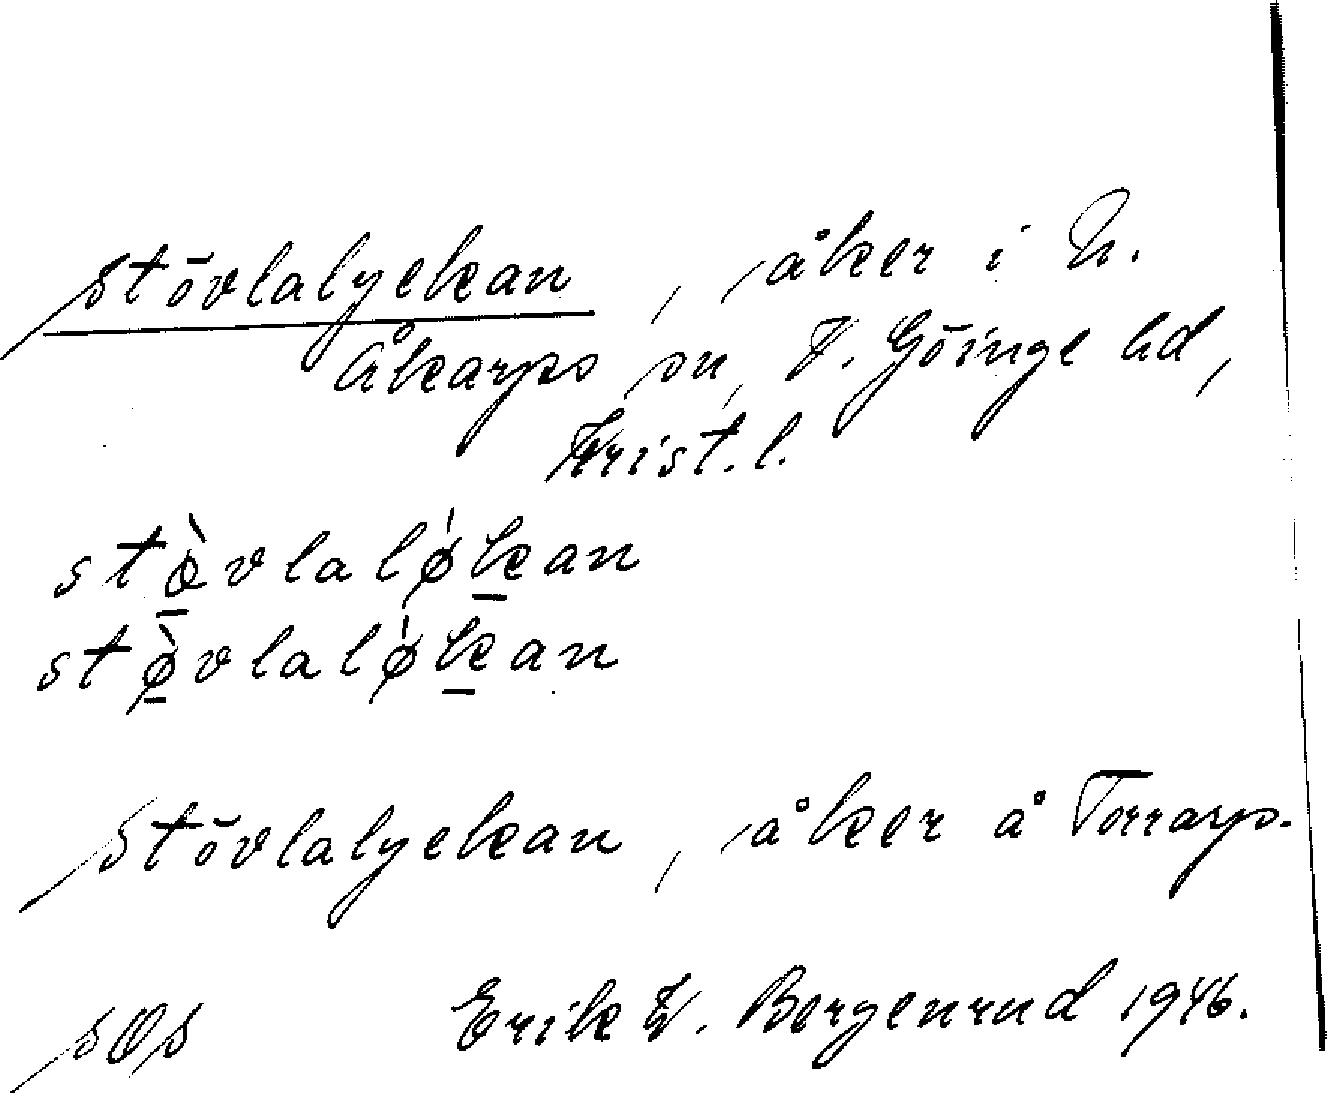 Stövlalyckan, åker i N.
Åkarps sn, V. Göinge hd,
Krist. l.
stö̀vlaló̷kan
stø̀vlalǿkan
Stövlalyckan, åker å Torrarp.
SOS Erik W. Bergenrud 1946.